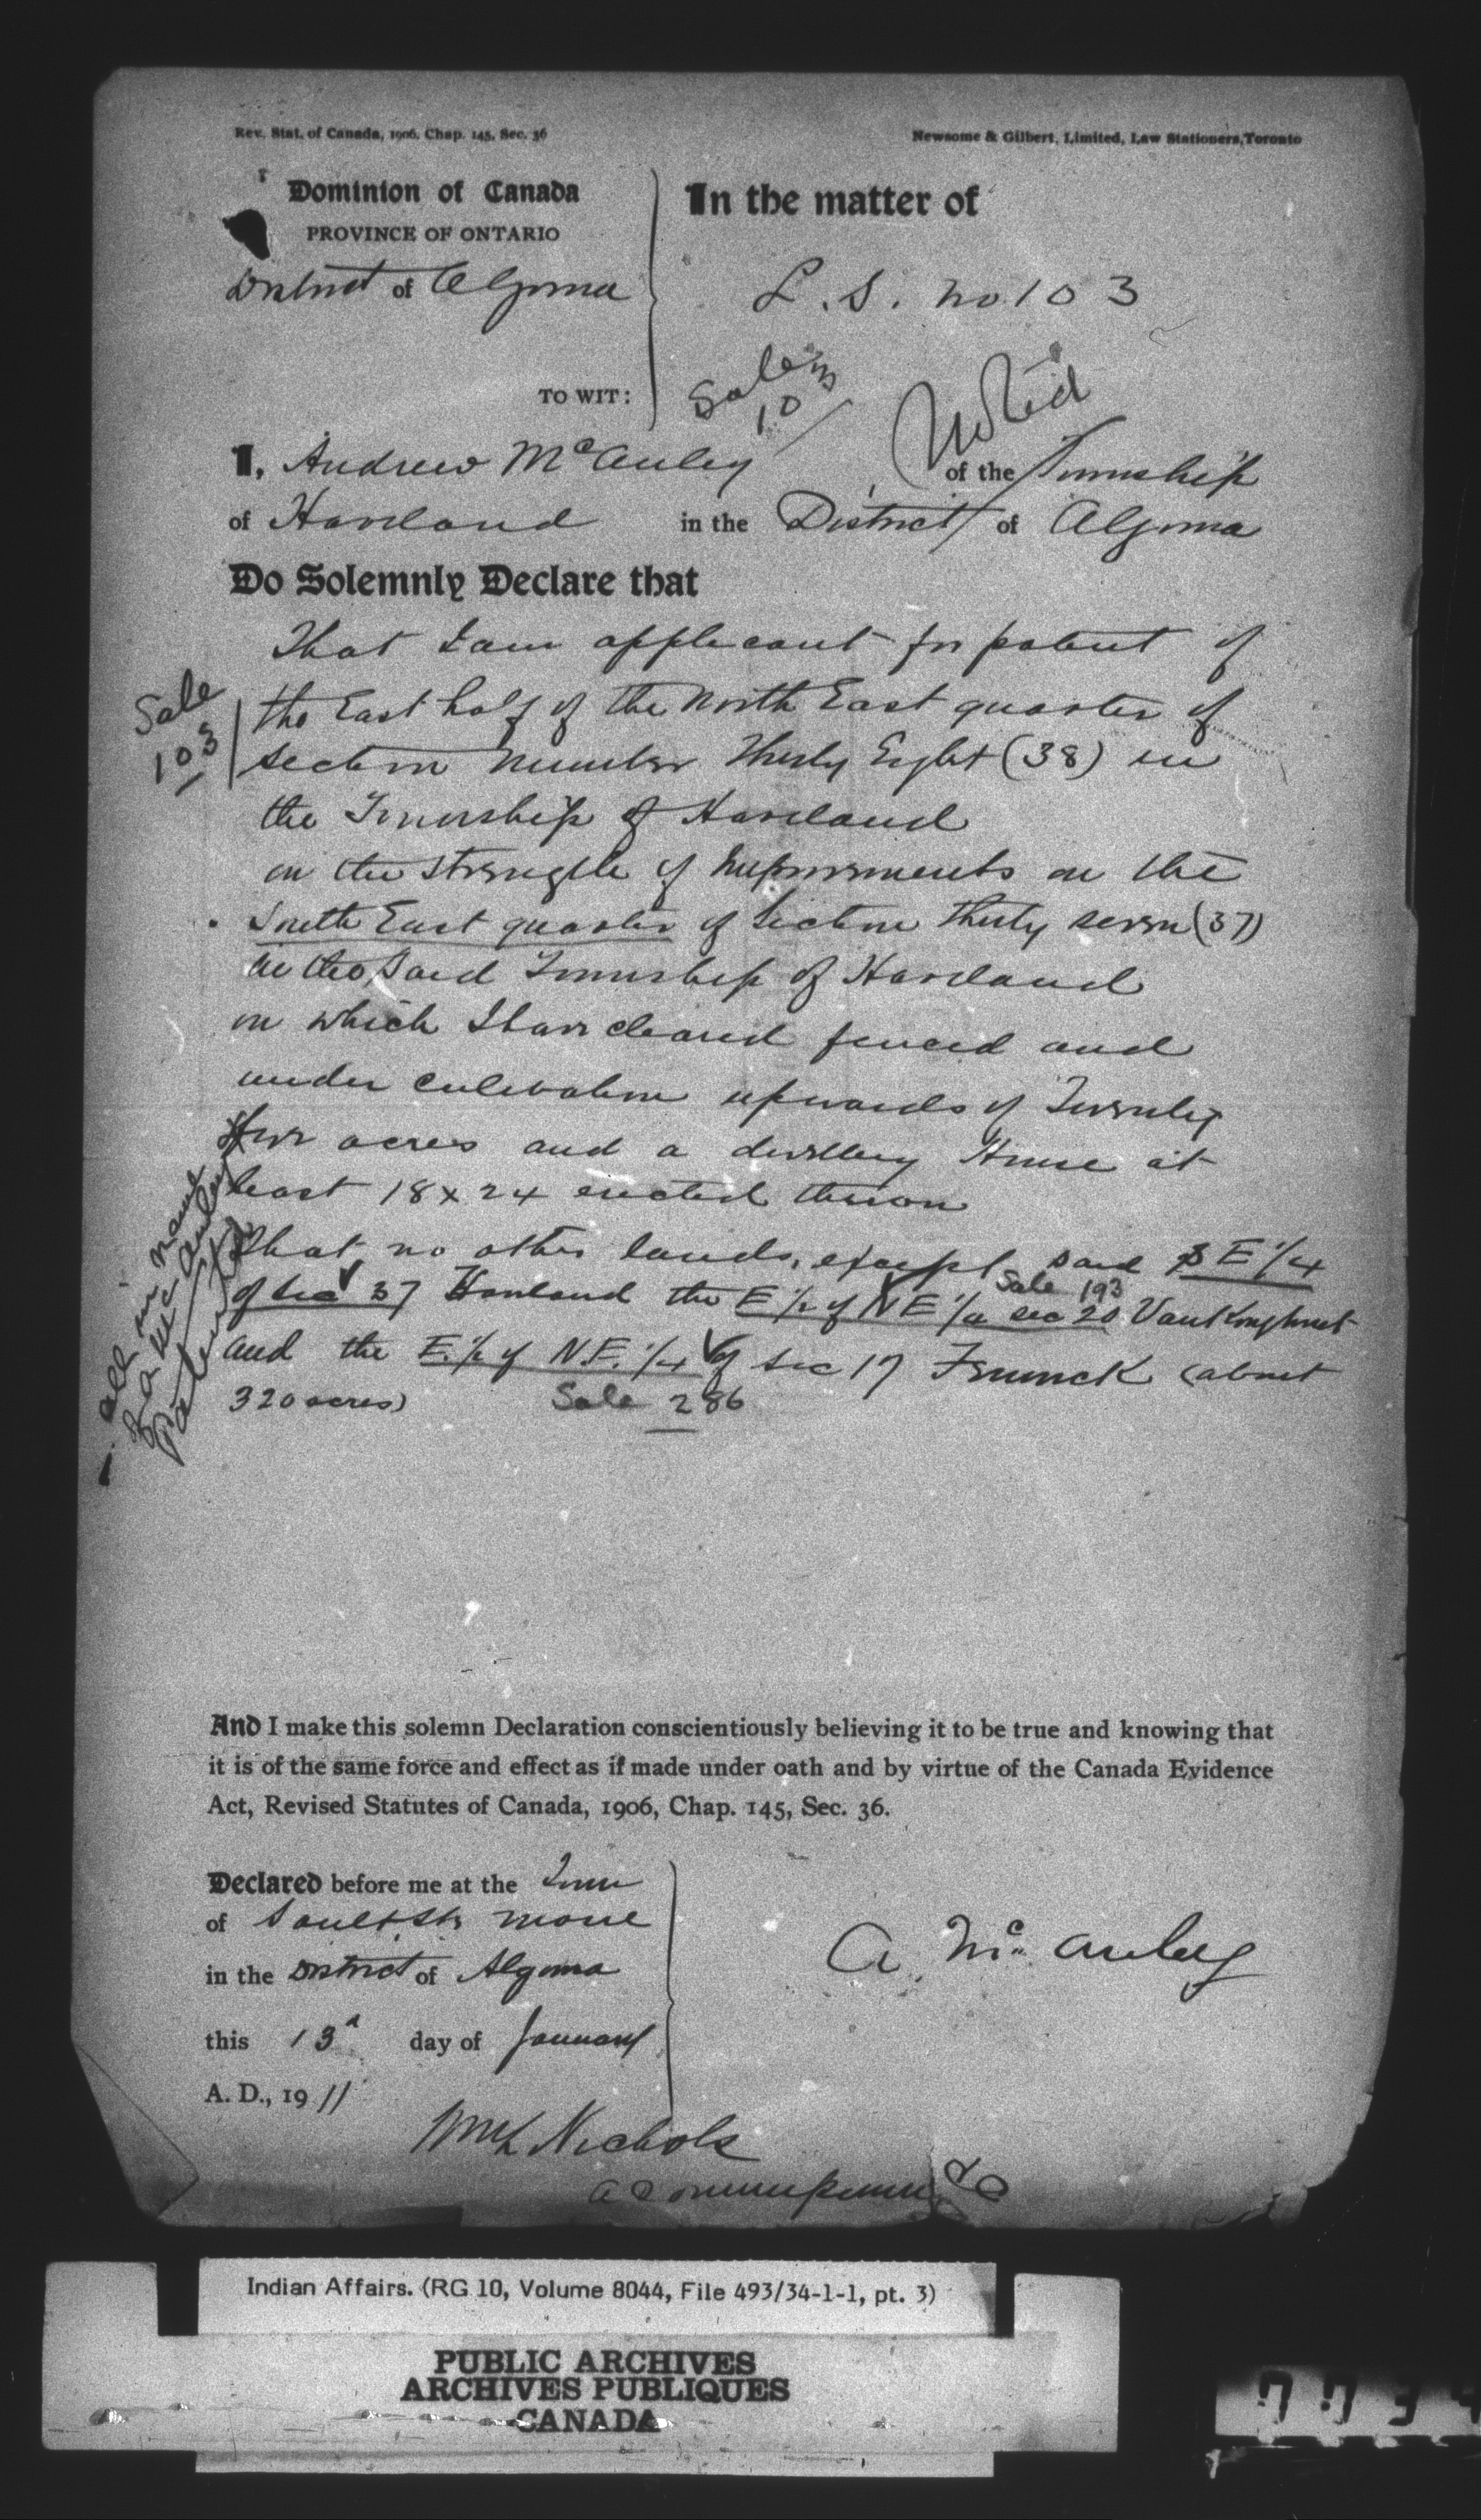 Rev. Stat. of Canada, 1906, Chap. 145, Sec. 36
Newsome & Gilbert, Limited, Law Stationers, Toronto
Dominion of Canada
PROVINCE OF ONTARIO
District of Algoma
TO WIT:
In the matter of
L. S. no 103
Sale 103
Noted
I, Andrew McAuley of the Township
of Haviland in the District of Algoma
Do Solemnly Declare that
That I am applicant for patent of
Sale 103
the East half of the North East quarter of
section number Thirty Eight (38) in
the Township of Haviland
on the strength of Improvements on the
South East quarter of Section Thirty seven (37)
in the said Township of Haviland
on which I have cleared fenced and
under cultivation upwards of Twenty
five acres and a dwelling House at
least 18 x 24 erected thereon
That no other lands, except said S E 1/4
of Sec 37 Haviland the E 1/2 of N E 1/4 sec 20 Vankoughnet
Sale 193
and the E. 1/2 of N.E. 1/4 of Sec 17 Fenwick (about
320 acres)
Sale 286
all in name
of A McAuley
Patented
And I make this solemn Declaration conscientiously believing it to be true and knowing that
it is of the same force and effect as if made under oath and by virtue of the Canada Evidence
Act, Revised Statutes of Canada, 1906, Chap. 145, Sec. 36.
Declared before me at the Town
of Sault Ste Marie
in the District of Algoma
this 13th day of January
A. D., 1911
A. McAuley
Nichols
a Commissioner &c
Indian Affairs. (RG 10, Volume 8044, File 493/34-1-1, pt. 3)
PUBLIC ARCHIVES
ARCHIVES PUBLIQUES
CANADA